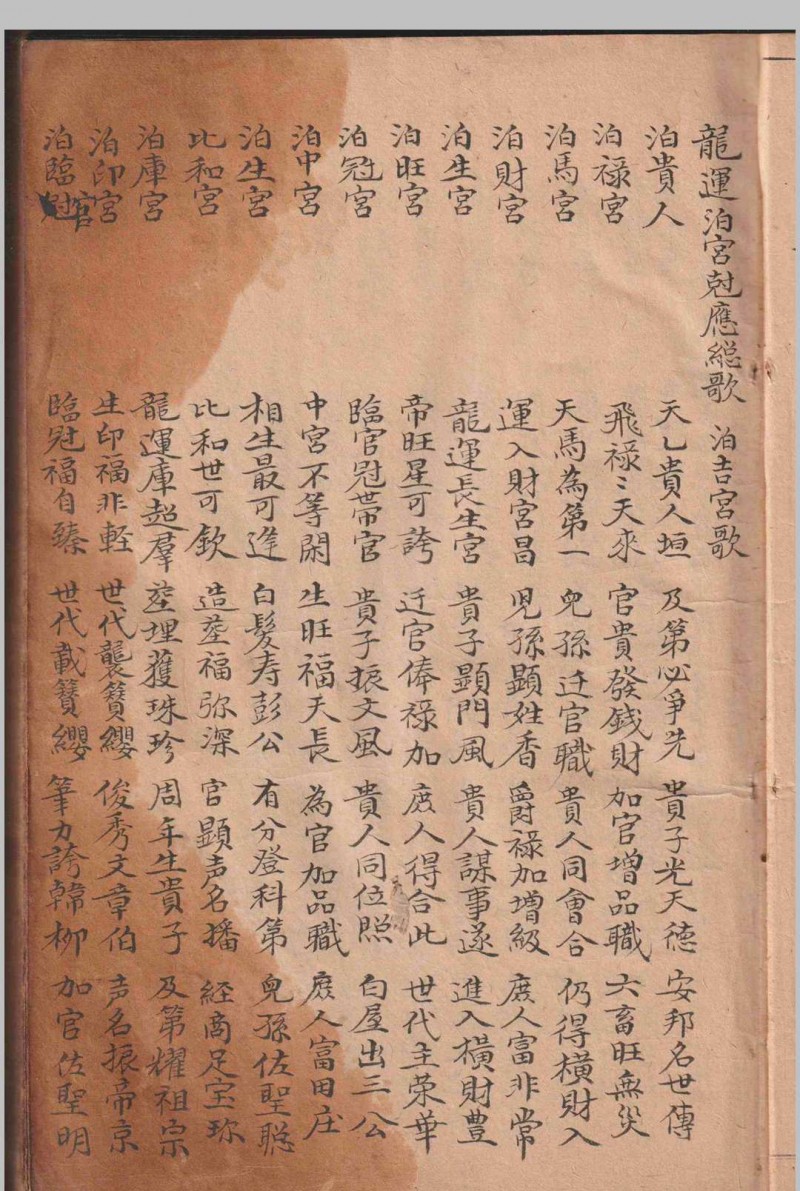 龍運泊宮尅應総歌 泊吉宮歌
泊貴人 天乙貴人垣 及第必爭先 貴子光天德 安邦名世傳
泊禄宮 飛禄〻天來 官貴發錢財 加官增品職 六畜旺無災
泊馬宮 天馬為第一 兒孫迁官職 貴人同會合 仍得橫財入
泊財宮 運入財宮昌 児孫顕姓香 爵禄加增級 庶人富非常
泊生宮 龍運長生宮 貴子顕門風 貴人謀事遂 進入橫財豊
泊旺宮 帝旺星可誇 迁官俸禄加 庶人得合此 世代主荣華
泊冠宮 臨官冠帶官 貴子振文風 貴人同位照 白屋出三公
泊中宮 中宮不等閑 生旺福天長 為官加品職 庶人富田庄
泊生宮 相生最可逢 白髮寿彭公 有分登科第 兒孫佐聖聡
比和宮 比和世可欽 造塟福弥深 官顕声名播 経商足宝珎
泊庫宮 龍運庫超群 塟埋獲珠珍 周年生貴子 及第耀祖宗
泊印宮 生印福非軽 世代襲簪纓 俊秀文章伯 声名振帝京
泊臨冠官 臨冠福自臻 世代載簪纓 筆力誇韓柳 加官佐聖明